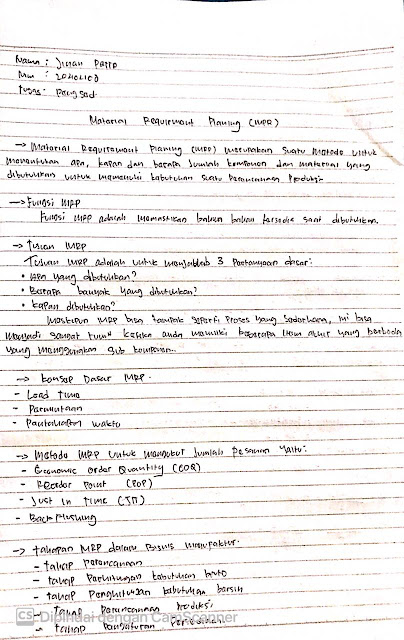 Nama : Jinan
Nim :
Tugas :
Material Requirement Planing (MRP)
→ Material Requirement Planing (MRP) merupakan suatu metode untuk
menentukan apa, kapan dan berapa jumlah komponen dan material yang
dibutuhkan untuk memenuhi kebutuhan suatu perencanaan Produksi.
→ Fungsi MRP
Fungsi MRP adalah memastikan bahan bahan tersedia saat dibutuhkan.
→ Tujuan MRP
Tujuan MRP adalah untuk menjawab 3 Pertanyaan dasar:
• apa yang dibutuhkan?
• Berapa banyak yang dibutuhkan?
• kapan dibutuhkan?
Meskipun MRP bisa tampak seperti Proses yang sederhana, ini bisa
menjadi sangat rumit ketika anda memiliki beberapa item akhir yang berbeda
yang menggunakan sub komponen.
→ konsep Dasar MRP.
- Lead Time
- Permintaan
- waktu
→ Metode MRP untuk mengukur Jumlah Pesanan yaitu:
- Economic order Quantity (EOQ)
- REorder point (ROP)
- Just In Time (JIT)
- Back Flushing
→ tahapan MRP dalam Bisnis manufaktur.
- tahap perencanaan
- tahap Perhitungan kebutuhan bruto
- tahap Penghitungan kebutuhan bersih
- tahap Perencanaan Produksi
- tahap
CS Dipindai dengan CamScanner